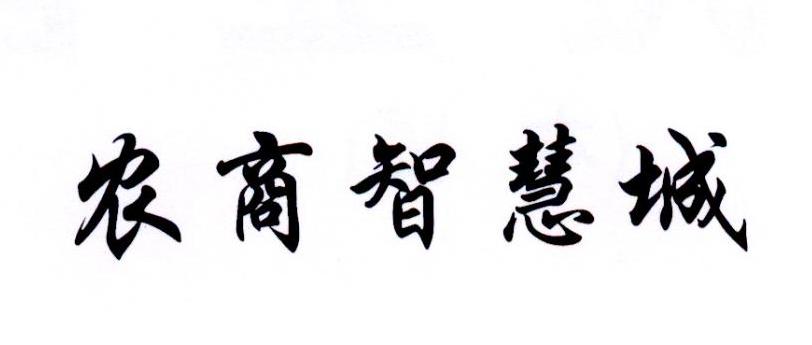 农商智慧城